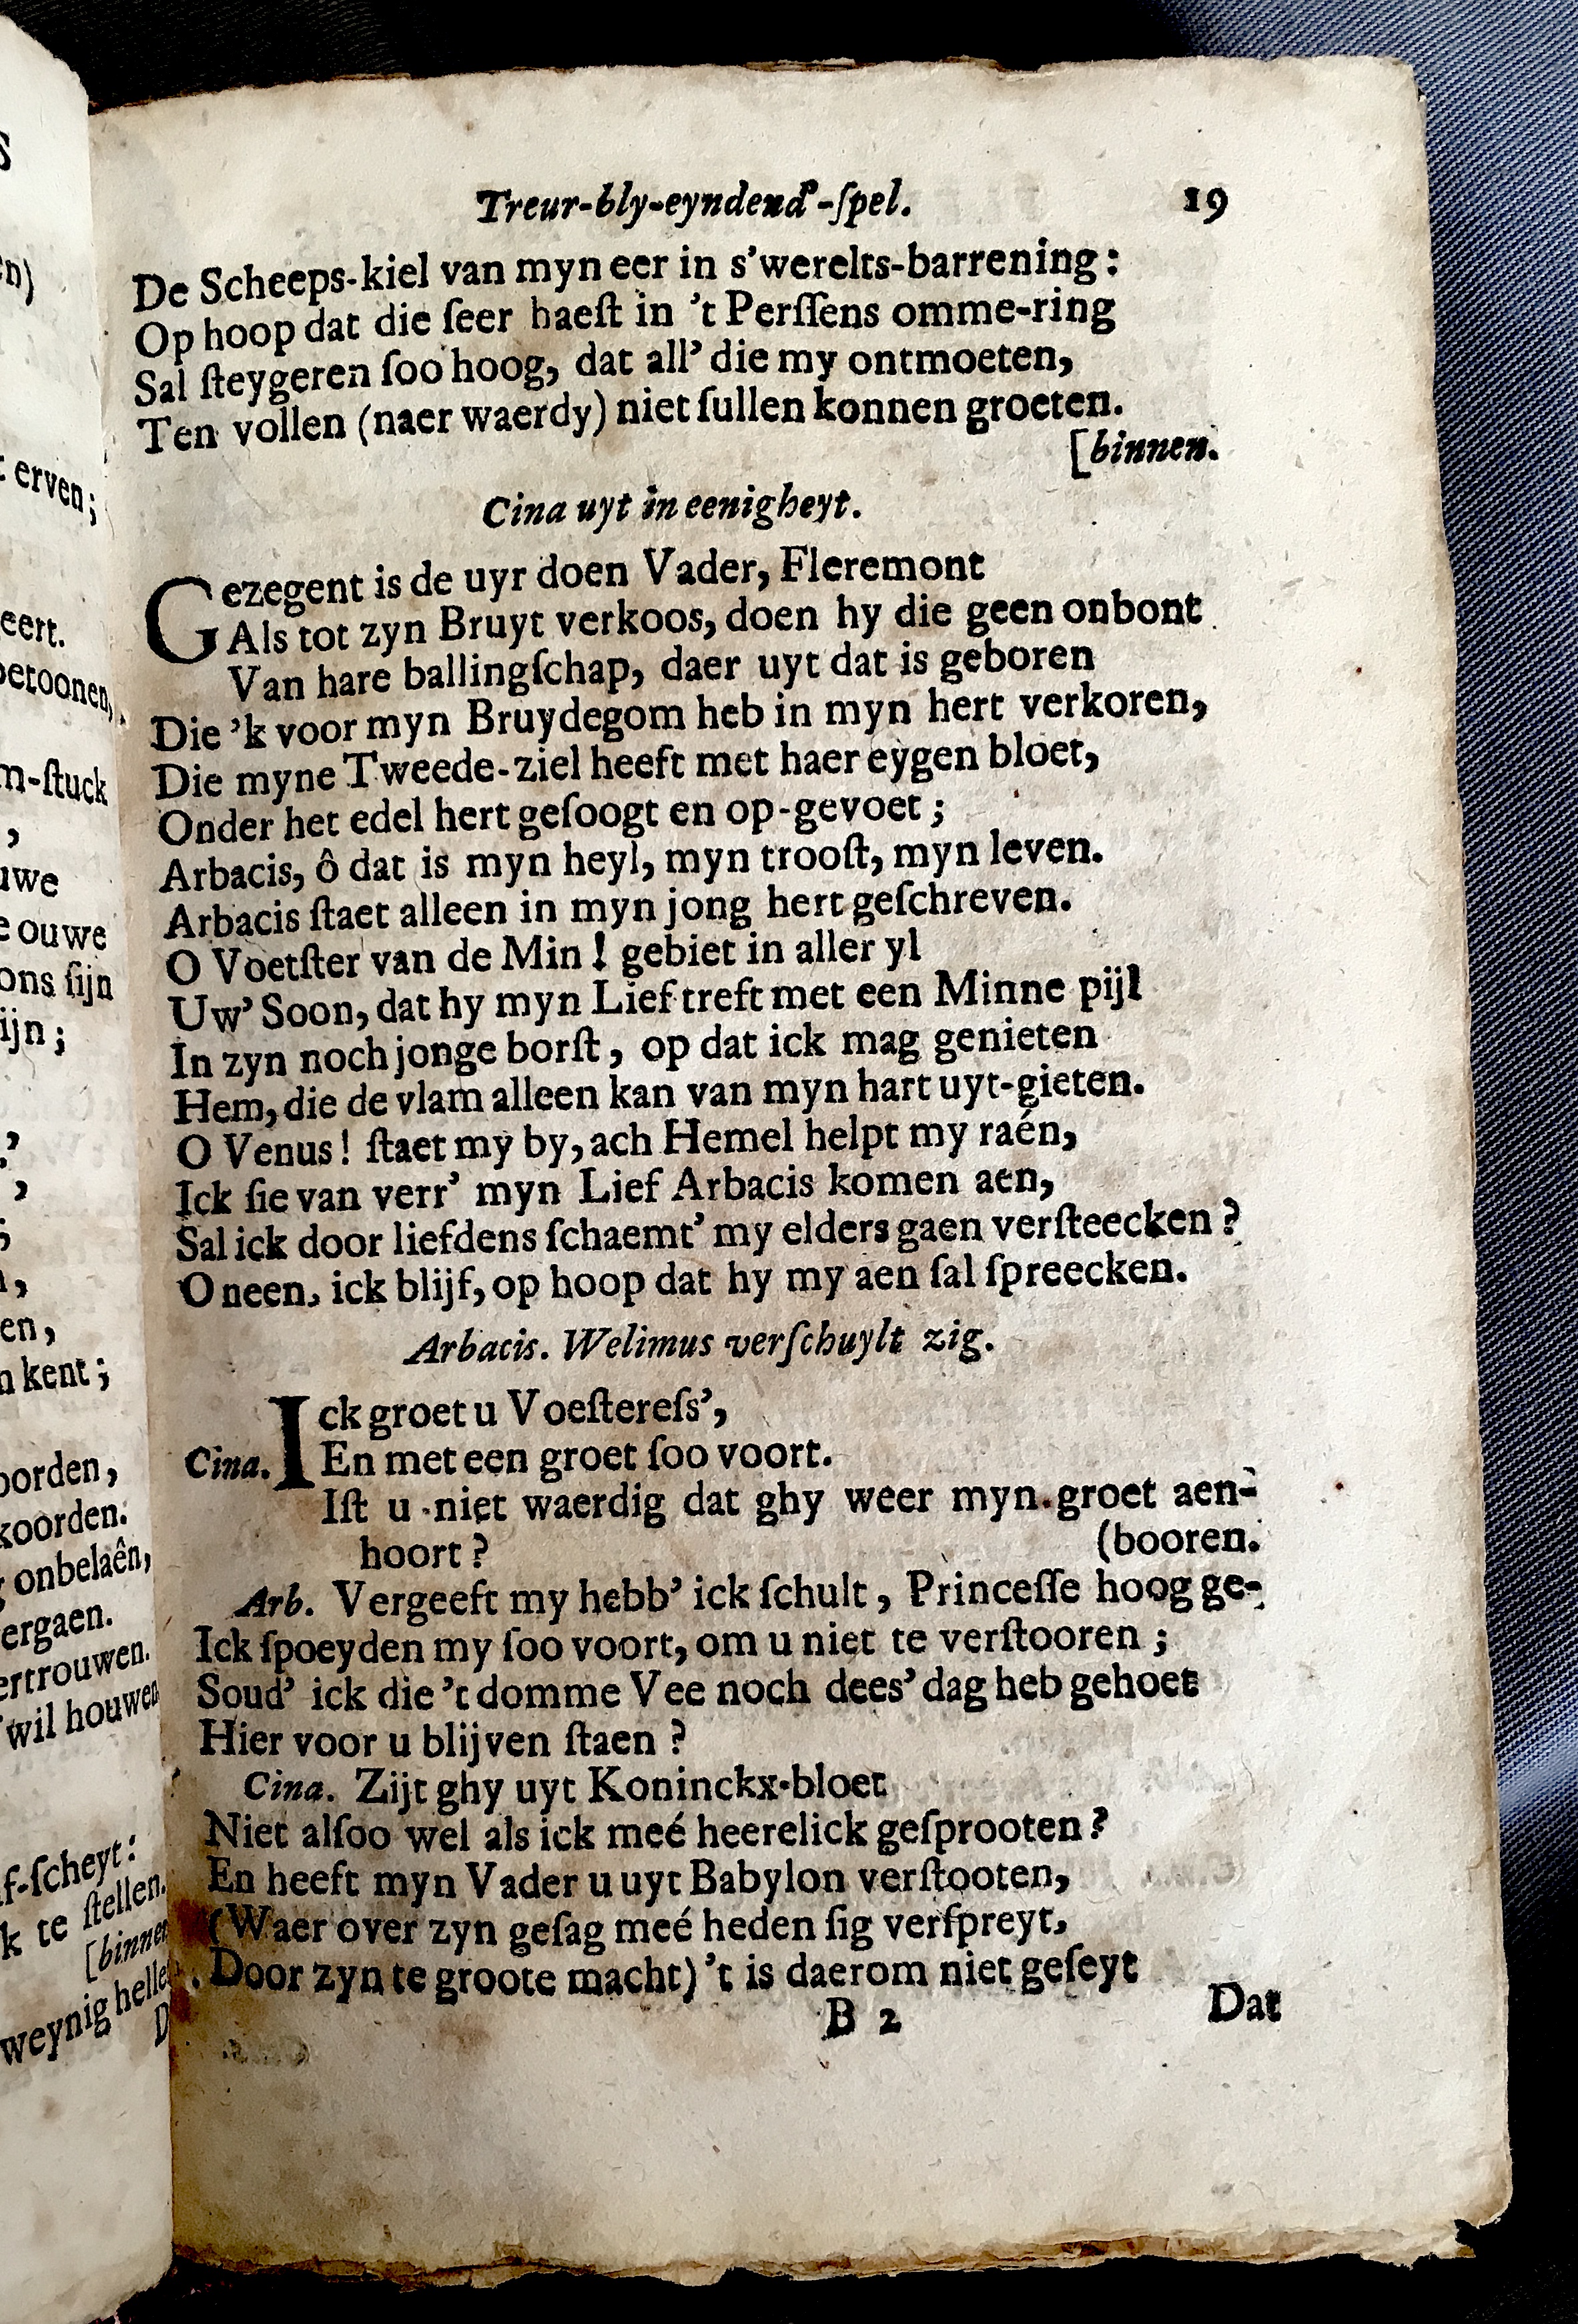 Treur-bly-eyndend'-ſpel. 19
De Scheeps-kiel van myn eer in s'werelts-barrening:
Op hoop dat die ſeer haeſt in 't Perſſens omme-ring
Sal ſteygeren ſoo hoog, dat all' die my ontmoeten,
Ten vollen (naer waerdy) niet ſullen konnen groeten.
[binnen.
Cina uyt in eenigheyt.
Gezegent is de uyr doen Vader, Fleremont
Als tot zyn Bruyt verkoos, doen hy die geen onbont
Van hare ballingſchap, daer uyt dat is geboren
Die 'k voor myn Bruydegom heb in myn hert verkoren,
Die myne Tweede-ziel heeft met haer eygen bloet,
Onder het edel hert geſoogt en op-gevoet;
Arbacis, ô dat is myn heyl, myn trooſt, myn leven.
Arbacis ſtaet alleen in myn jong hert geſchreven.
O Voetſter van de Min! gebiet in aller yl
Uw' Soon, dat hy myn Lief treft met een Minne pijl
In zyn noch jonge borſt, op dat ick mag genieten
Hem, die de vlam alleen kan van myn hart uyt-gieten.
O Venus! ſtaet my by, ach Hemel helpt my raén,
Ick ſie van verr' myn Lief Arbacis komen aen,
Sal ick door liefdens ſchaemt' my elders gaen verſteecken?
O neen, ick blijf, op hoop dat hy my aen ſal ſpreecken.
Arbacis. Welimus verſchuylt zig.
Ick groet u Voeſtereſs',
Cina. En met een groet ſoo voort.
Iſt u niet waerdig dat ghy weer myn groet aen-
hoort? (booren.
Arb. Vergeeft my hebb' ick ſchult, Princeſſe hoog ge-
Ick ſpoeyden my ſoo voort, om u niet te verſtooren;
Soud' ick die 't domme Vee noch dees' dag heb gehoet
Hier voor u blijven ſtaen?
Cina. Zijt ghy uyt Koninckx-bloet
Niet alſoo wel als ick meé heerelick geſprooten?
En heeft myn Vader u uyt Babylon verſtooten,
(Waer over zyn geſag meé heden ſig verſpreyt,
Door zyn te groote macht) 't is daerom niet geſeyt
B 2 Dat
erven;
eert.
m-ſtuck
ouwe
ons ſijn
kent;
onbelaên,
wil houwen
k te ſtellen.
[binnen
weynig